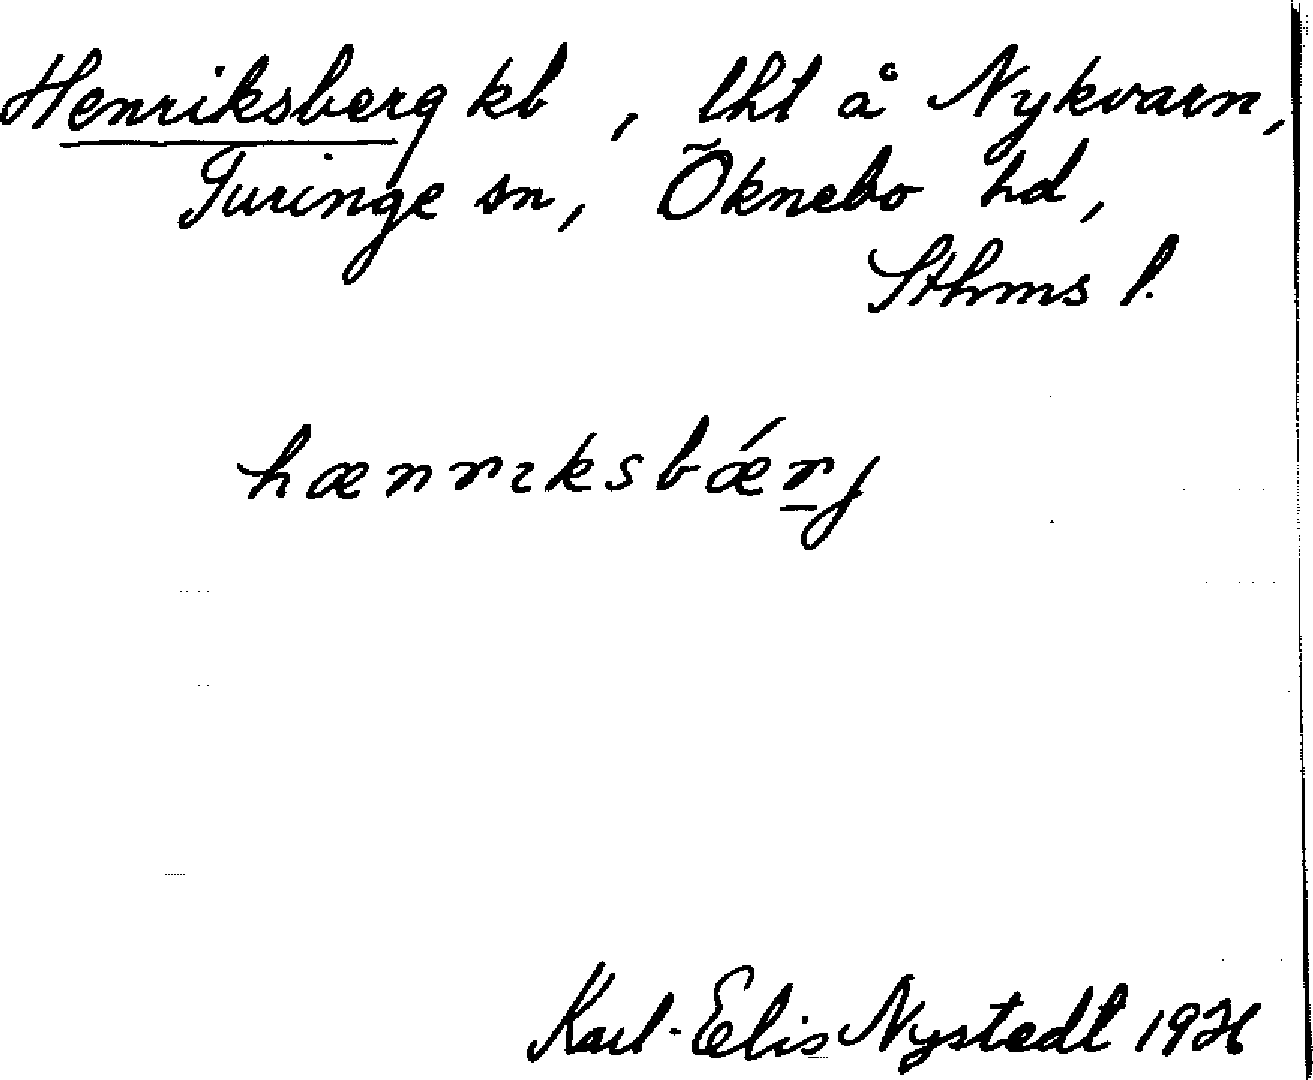 Henriksberg kb, lht å Nykvarn,
Turinge sn, Öknebo hd,
Sthms l.
hænrıksbǽr̲j
Karl-Elis Nystedt 1926